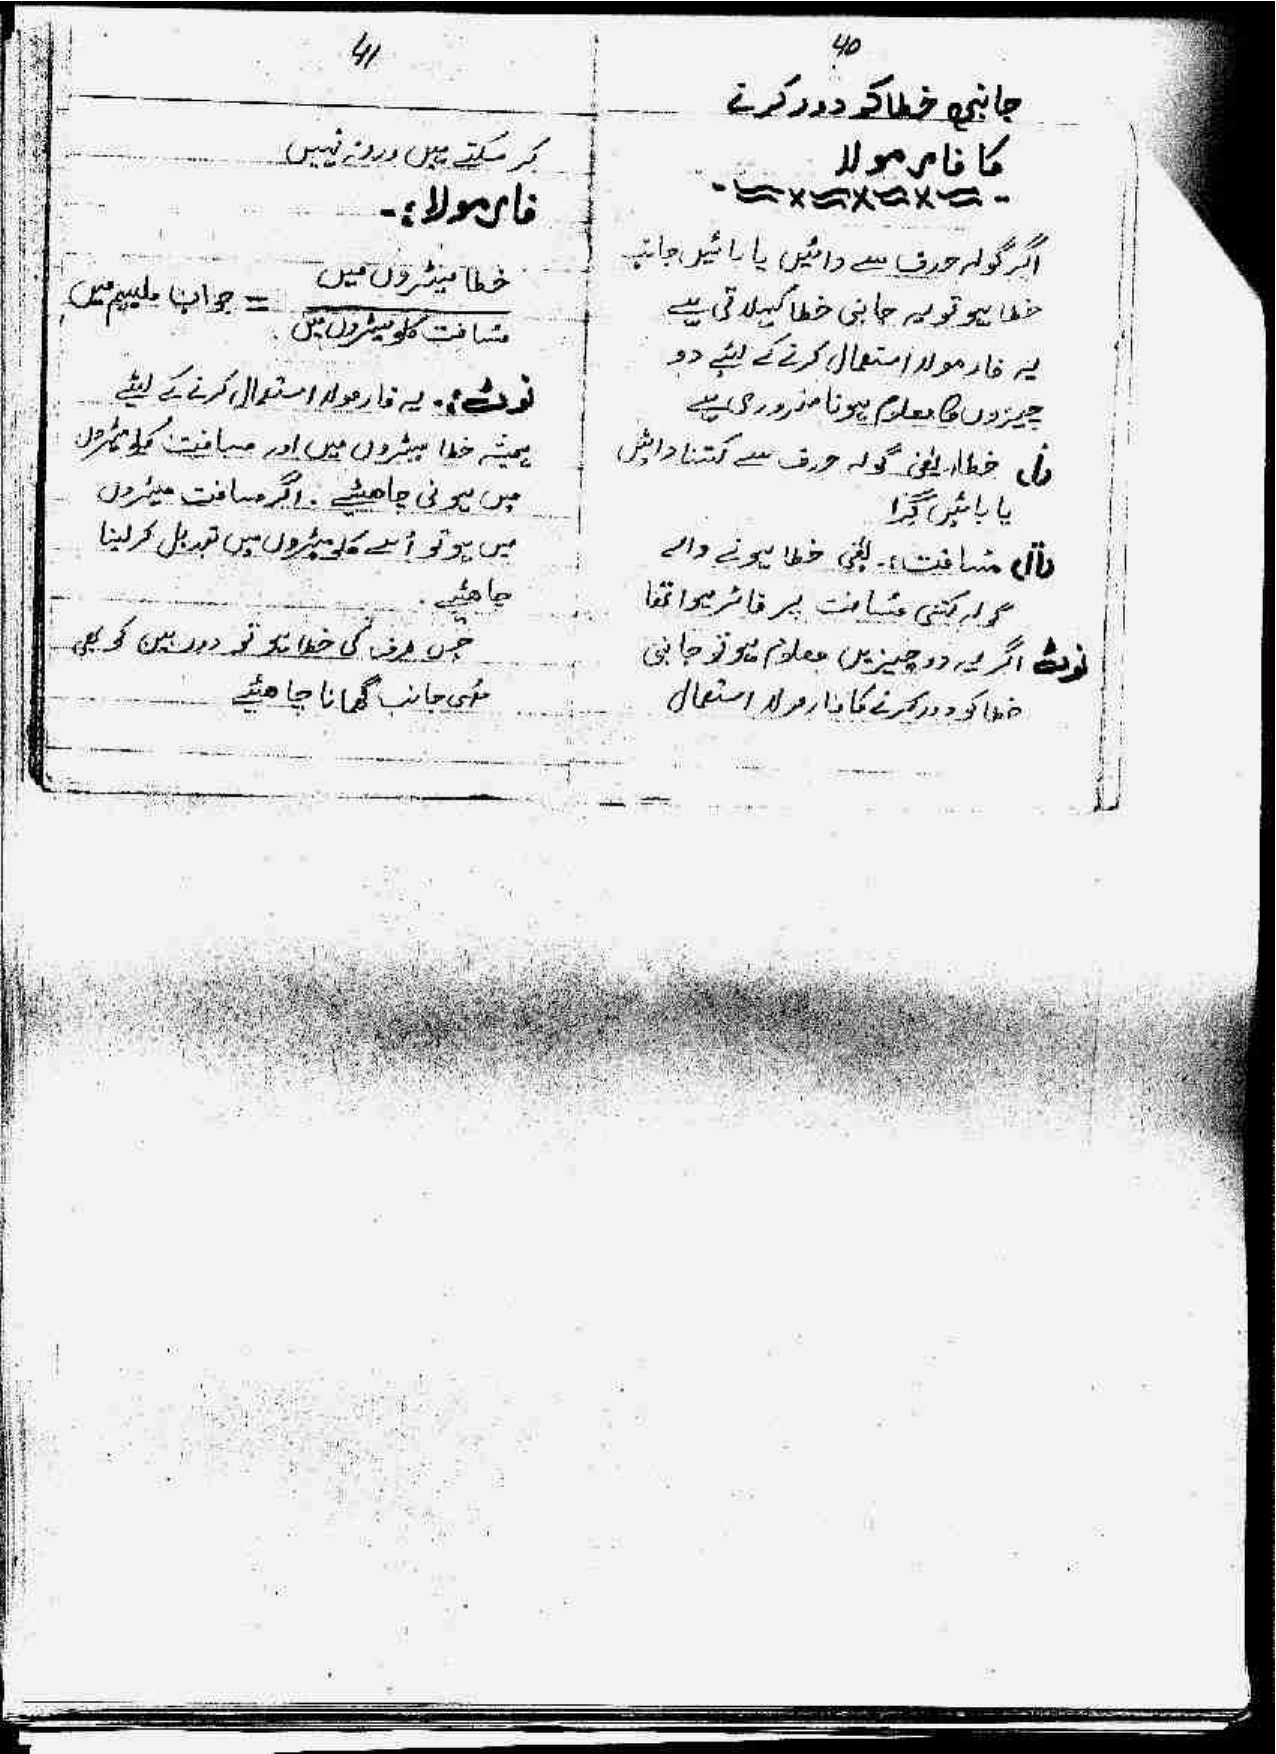 40
جانبی خطا کو دور کرنے
کا فارمولا
اگر گولہ ہدف سے دائیں یا بائیں جانب
خطا ہو تو یہ جانبی خطا کہلاتی ہے
یہ فارمولا استعمال کرنے کے لیئے دو
چیزوں کا معلوم ہونا ضروری ہے
خطا: یعنی گولہ ہدف سے کتنا دائیں
یا بائیں گرا
مسافت:- یعنی خطا ہونے والہ
گولہ کتنی مسافت پر فائر ہوا تھا
نوٹ اگر یہ دو چیزیں معلوم ہو تو جانبی
خطا کو دور کرنے کا فارمولا استعمال
41
کر سکتے ہیں ورنہ نہیں
فارمولا:-
خطا میٹروں میں
= جواب ملیم میں
مسافت کلو میٹروں میں
نوٹ:- یہ فارمولا استعمال کرنے کے لیئے
ہمیشہ خطا میٹروں میں اور مسافت کلو میٹروں
میں ہونی چاھیئے . اگر مسافت میٹروں
میں ہو تو اُسے کلو میٹروں میں تبدیل کر لینا
چاھیئے .
جس طرف کی خطا ہو تو دوربین کو بھی
اسی جانب گھمانا چاھیئے